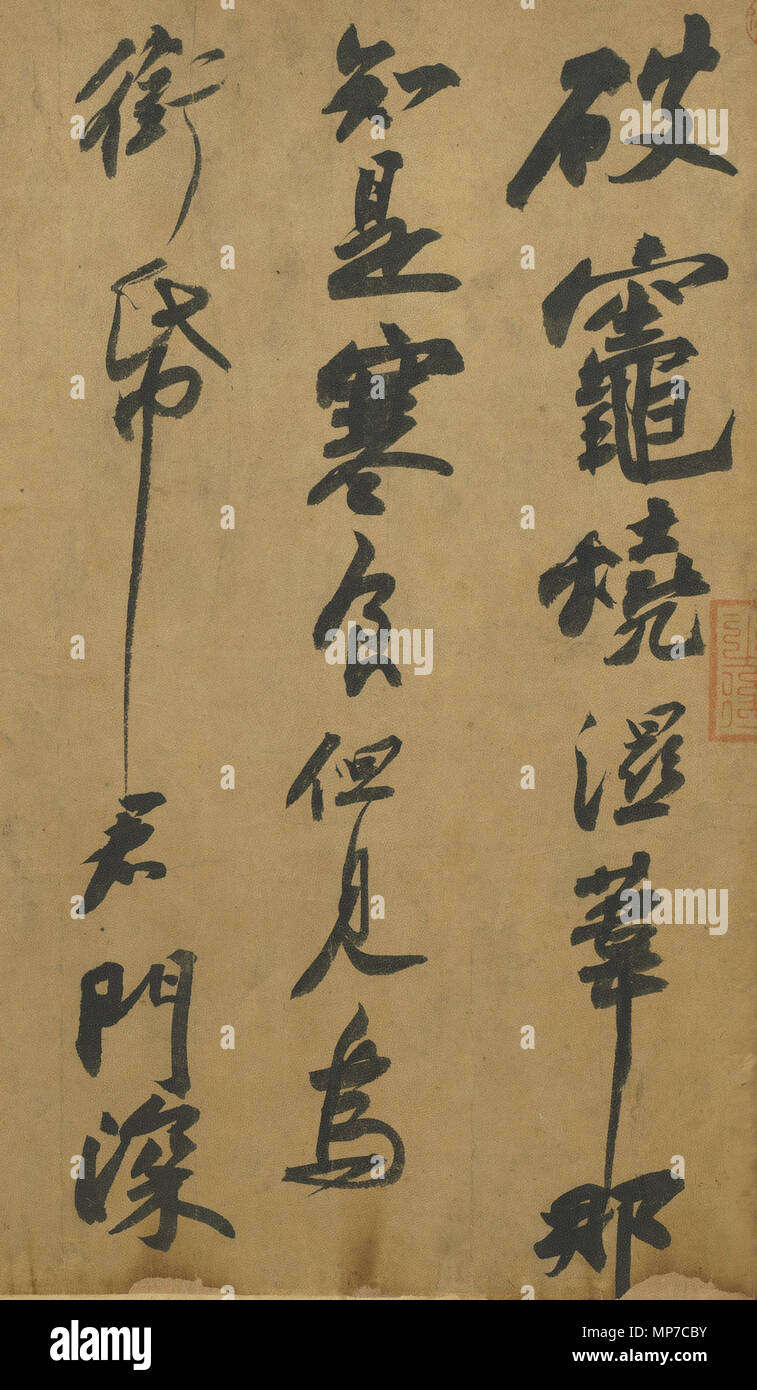 破竈燒濕葦那
知是寒食但見烏
銜帋君門深
alamy
Image ID: MP7CBY
www.alamy.com